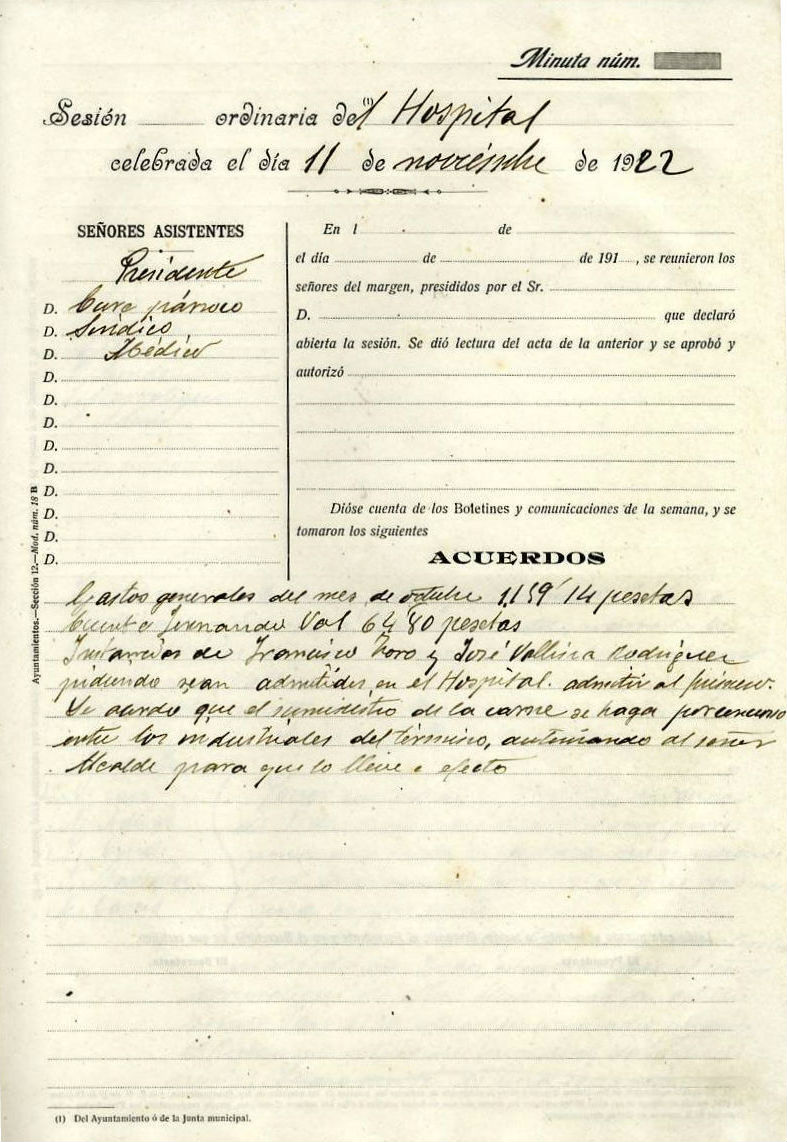 Minuta núm.
Sesión ordinaria de(1)l Hospital
celebrada el día 11 de noviembre de 1922
SEÑORES ASISTENTES
Presidente
D. Cura párroco
D. Síndico
D. Médico
D.
D.
D.
D.
D.
D.
D.
D.
D.
En 1 de
el día de de 191 , se reunieron los
señores del margen, presididos por el Sr.
D. que declaró
abierta la sesión. Se dió lectura del acta de la anterior y se aprobó y
autorizó
Dióse cuenta de los Boletines y comunicaciones de la semana, y se
tomaron los siguientes
ACUERDOS
Gastos generales del mes de octubre 1,159'14 pesetas
Cuenta Fernando Val 64'80 pesetas
Instancias de Francisco Toro y José Vallina Rodriguez
pidiendo sean admitidos en el Hospital. admitir al primero.
Se acordo que el suministro de la carne se haga por concurso
entre los industriales del término, autorizando al señor
Alcalde para que lo lleve a efecto
Ayuntamientos.—Sección 12.—Mod. núm. 18 B
(1) Del Ayuntamiento ó de la Junta municipal.